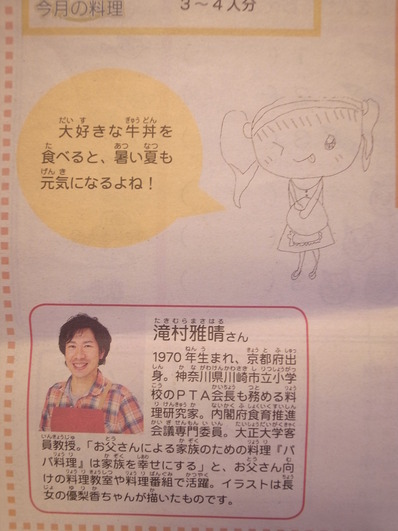 今月の料理
3〜4人分
大好きな牛丼を
食べると、暑い夏も
元気になるよね！
滝村雅晴さん
1970年生まれ、京都府出
身。神奈川県川崎市立小学
校のPTA会長も務める料
理研究家。内閣府食育推進
会議専門委員。大正大学客
員教授。「お父さんによる家族のための料理『パ
パ料理』は家族を幸せにする」と、お父さん向
けの料理教室や料理番組で活躍。イラストは長
女の優梨香ちゃんが描いたものです。